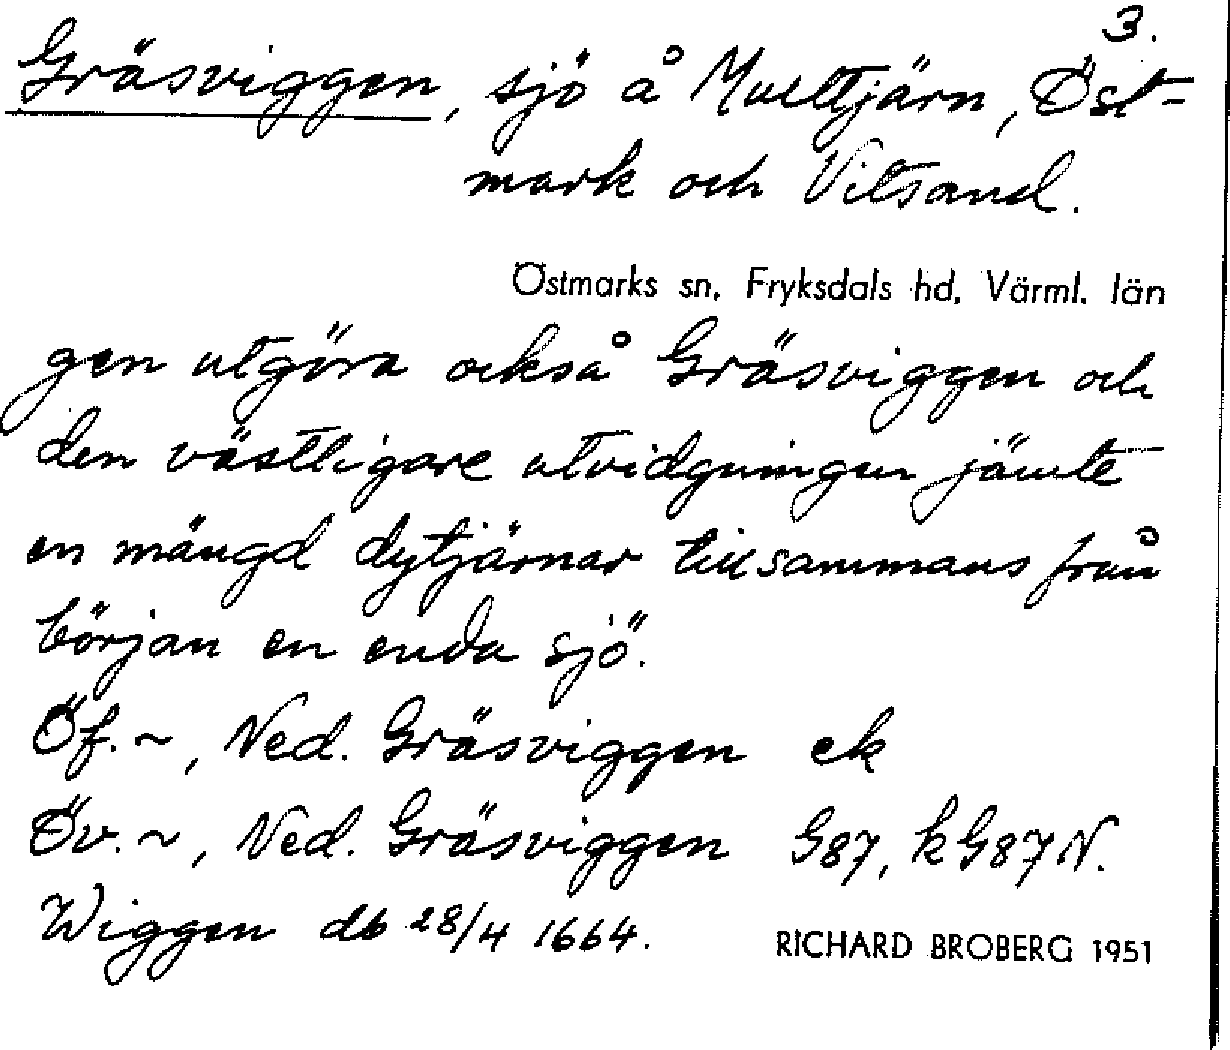 3.
Gräsviggen, sjö å Mulltjärn, Öst-
mark och Vitsand.
Östmarks sn, Fryksdals hd, Värml. län
gen utgöra också Gräsviggen och
den västligare utvidgningen jämte
en mängd dytjärnar tillsammans från
början en enda sjö".
Öf. ~, Ned. Gräsviggen ek
Öv. ~, Ned. Gräsviggen G87, kG87N.
Wiggen db 28/4 1664.
RICHARD BROBERG 1951